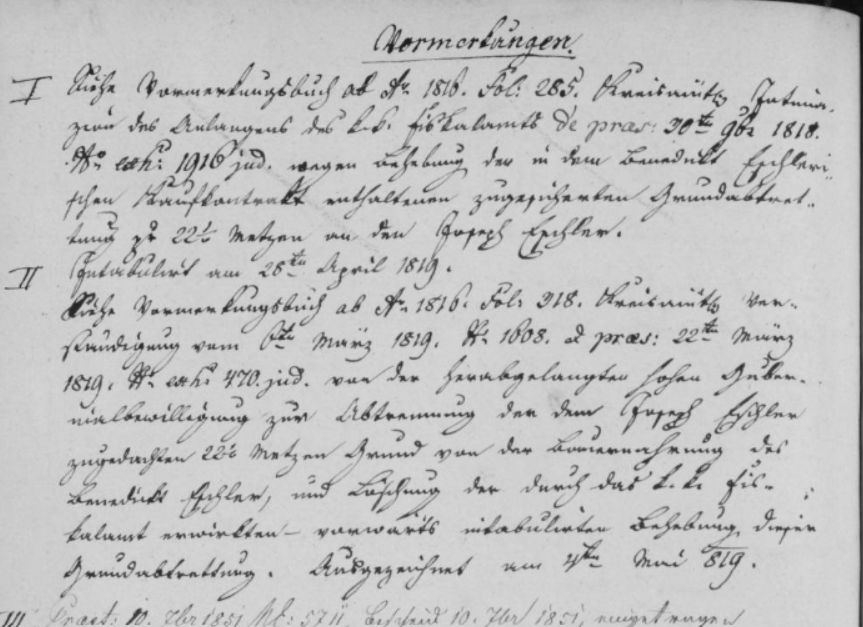 Vormerkungen.
I Siehe Vormerkungsbuch ab Ao 1816. Fol: 285. Kreisamtl. Intima-
zion des Anlangens des k. k. Fiskalamts de praes: 30ten 9br 1818.
No exh: 1916 jud. wegen Behebung der in dem Benedikt Eschleri-
schen Kaufkontrakt enthaltenen zugesicherten Grundabtret-
tung pr 22½ Metzen an den Joseph Eschler.
Intabulirt am 28ten April 1819.
II Siehe Vormerkungsbuch ab Ao 1816. Fol: 318. Kreisamtl. Ver-
ständigung vom 6ten März 1819. No 1608. de praes: 22ten März
1819. No exh: 470. jud. von der herabgelangten hohen Guber-
nialbewilligung zur Abtrennung der dem Joseph Eschler
zugedachten 22½ Metzen Grund von der Bauernahrung des
Benedickt Eschler, und Löschung der durch das k. k. Fis-
kalamt erwirkten - vorwärts intabulirten Behebung dieser
Grundabtrettung. Ausgezeichnet am 4ten Mai 819.
III Praes: 10. 7br 1851 No: 5711, Bescheid 10. 7br 1851, eingetragen